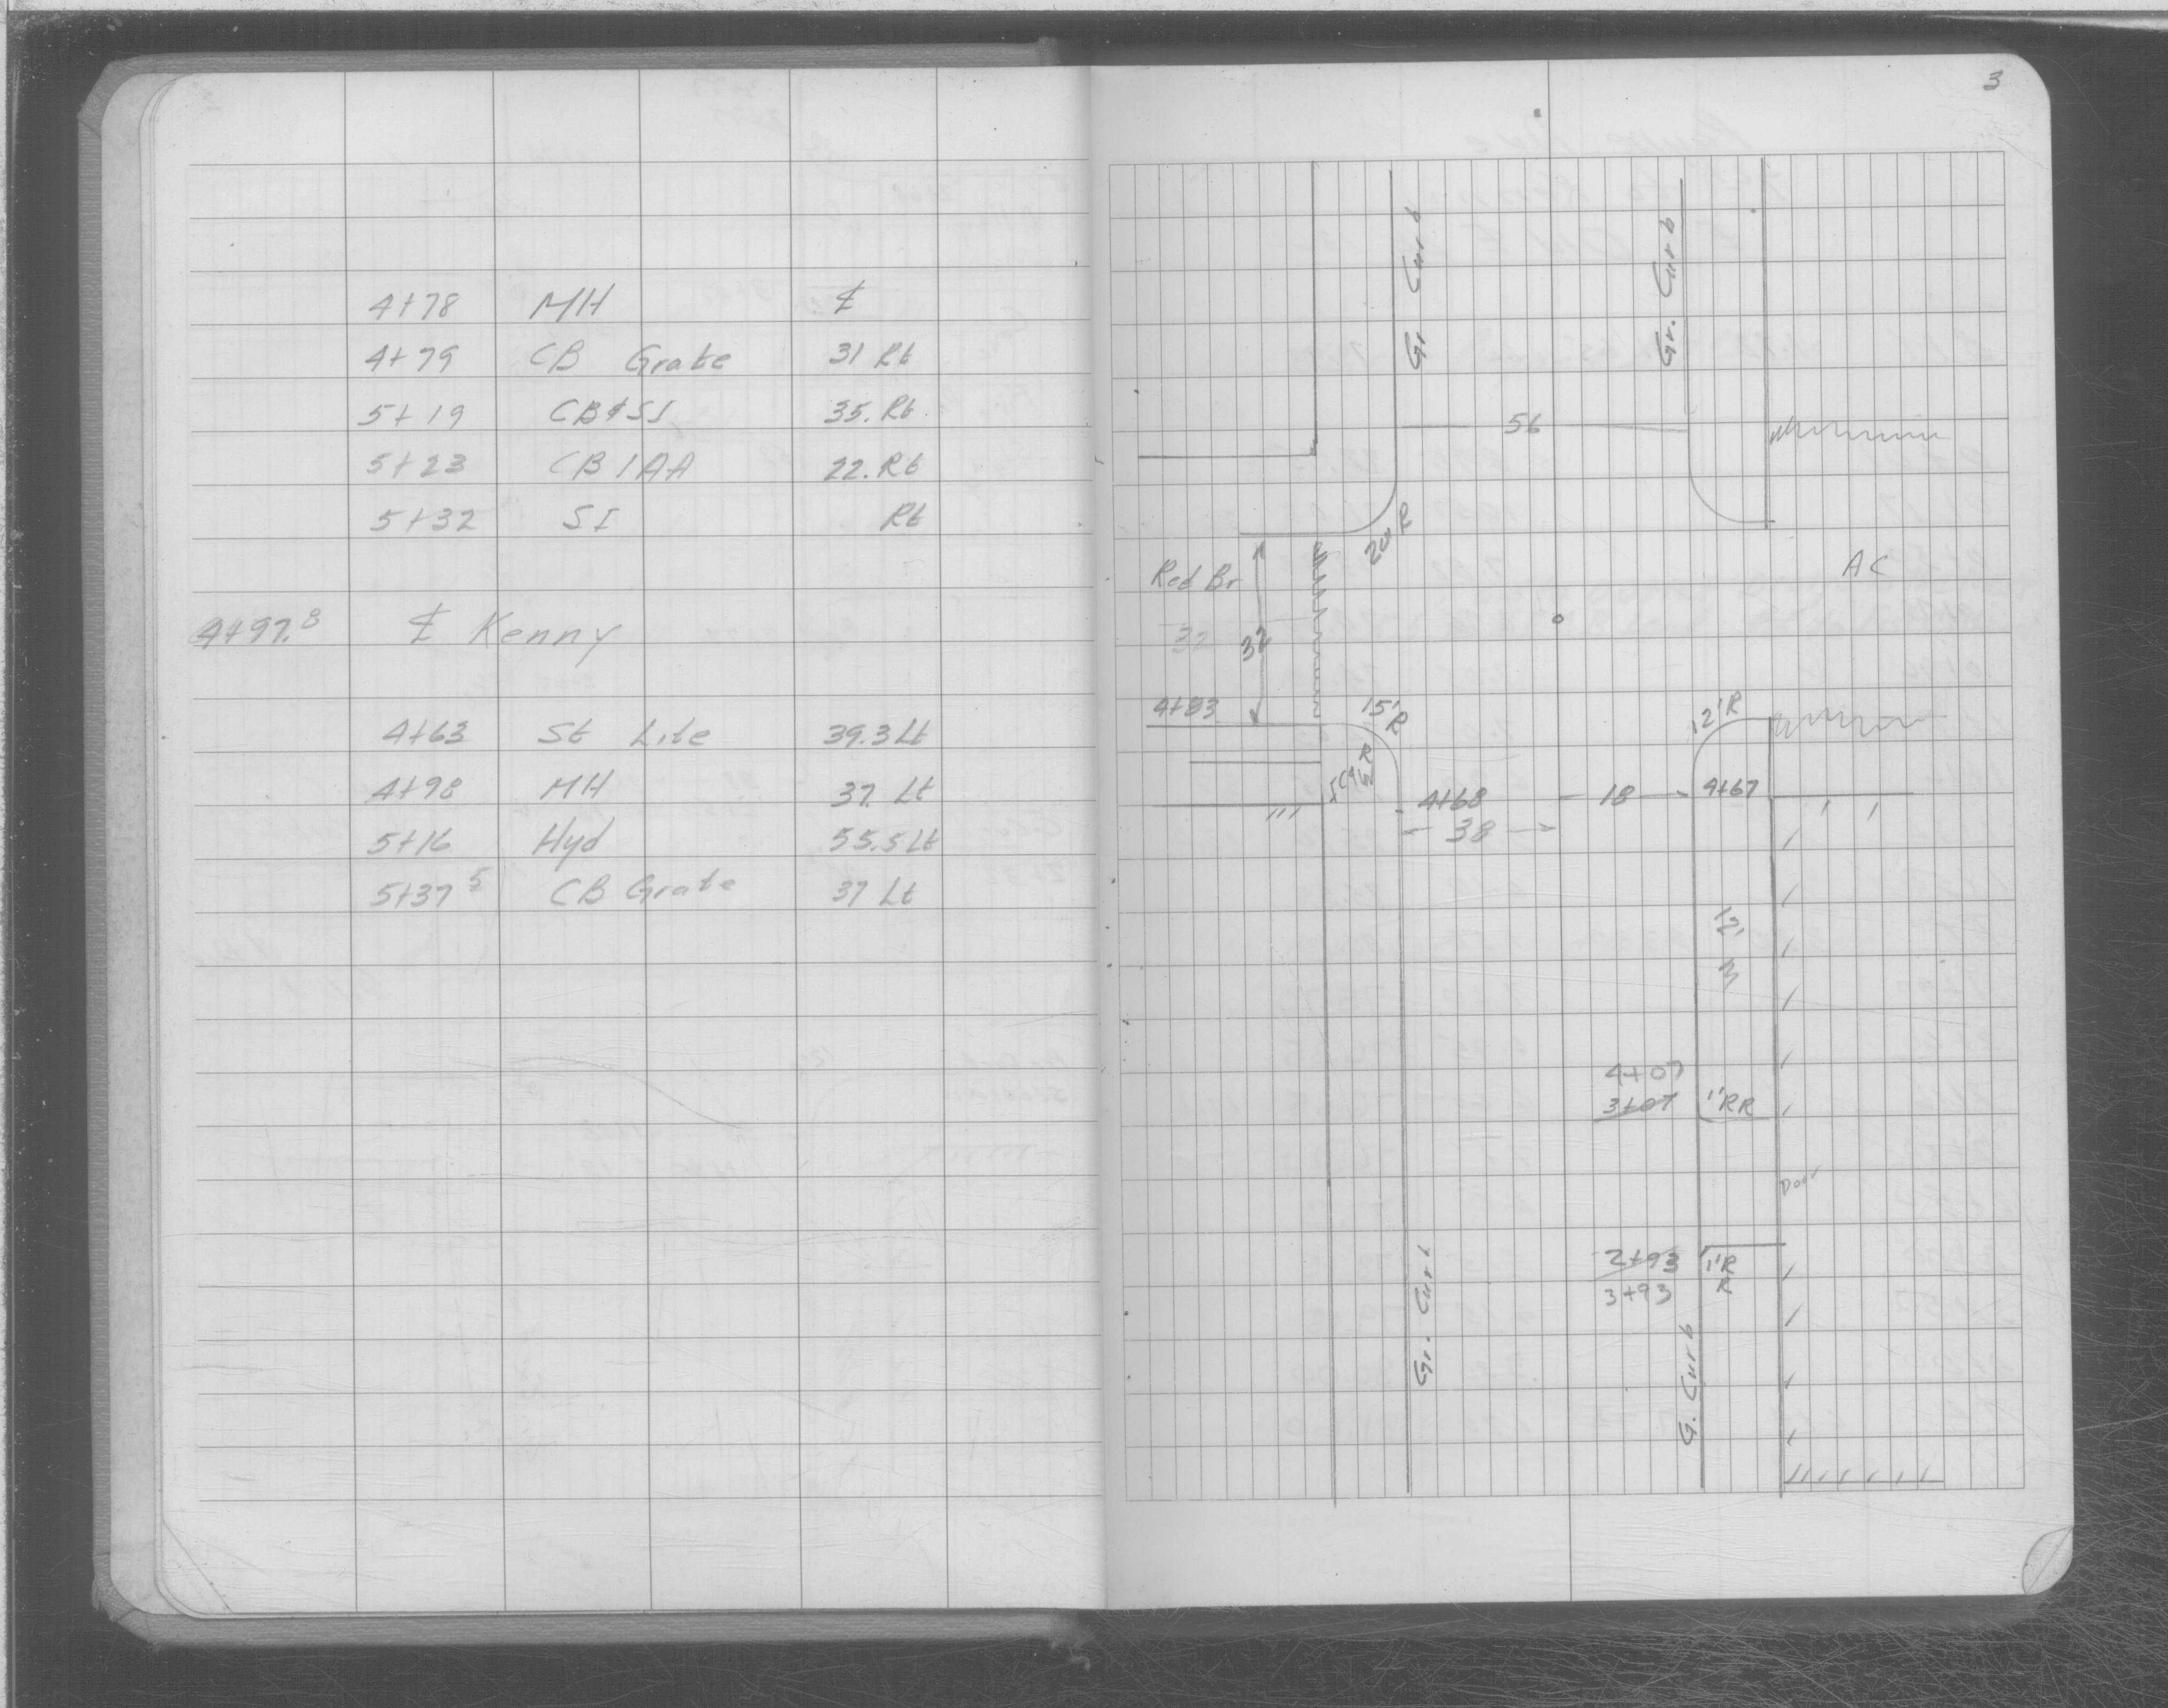 4+78 MH ℄
4+79 CB Grate 31 Rt
5+19 CB&SI 35. Rt.
5+23 CB 1AA 22. Rt
5+32 SI Rt
4+97.8 ℄ Kenny
4+63 St Lite 39.3 Lt
4+98 MH 37. Lt
5+16 Hyd 55.5 Lt
5+37 5 CB Grate 37 Lt
3
Gr Curb
Gr. Curb
56
20 R
Red Br
AC
32
32
4+83
15'R
12'R
4+68
18
4+67
38
4+07
3+07
1'RR
Door
2+93
1'R
R
3+93
Gr. Curb
G. Curb